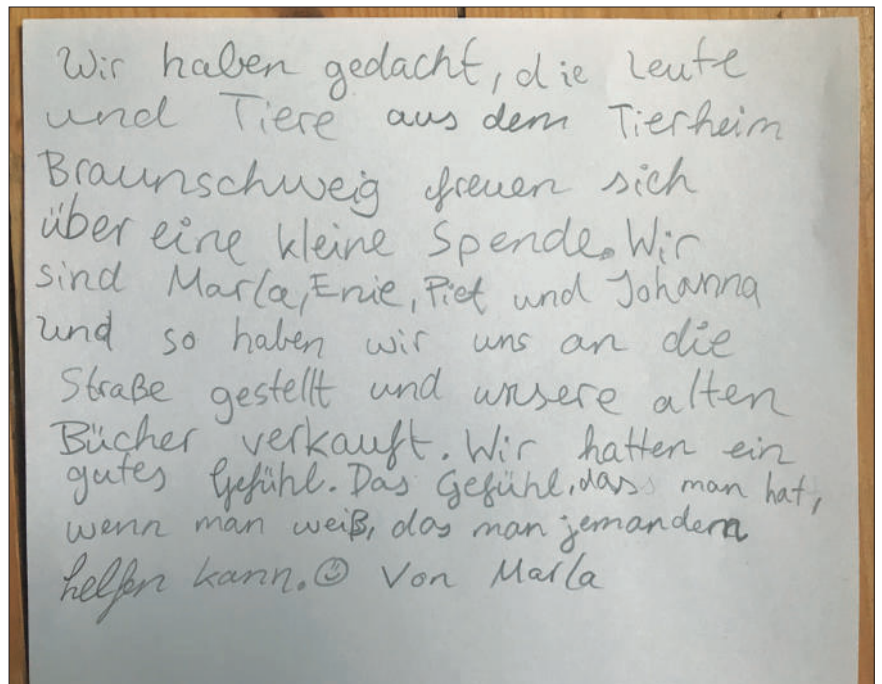 Wir haben gedacht, die Leute
und Tiere aus dem Tierheim
Braunschweig freuen sich
über eine kleine Spende. Wir
sind Marla, Enie, Piet und Johanna
und so haben wir uns an die
Straße gestellt und unsere alten
Bücher verkauft. Wir hatten ein
gutes Gefühl. Das Gefühl, dass man hat,
wenn man weiß, das man jemandem
helfen kann.☺ Von Marla